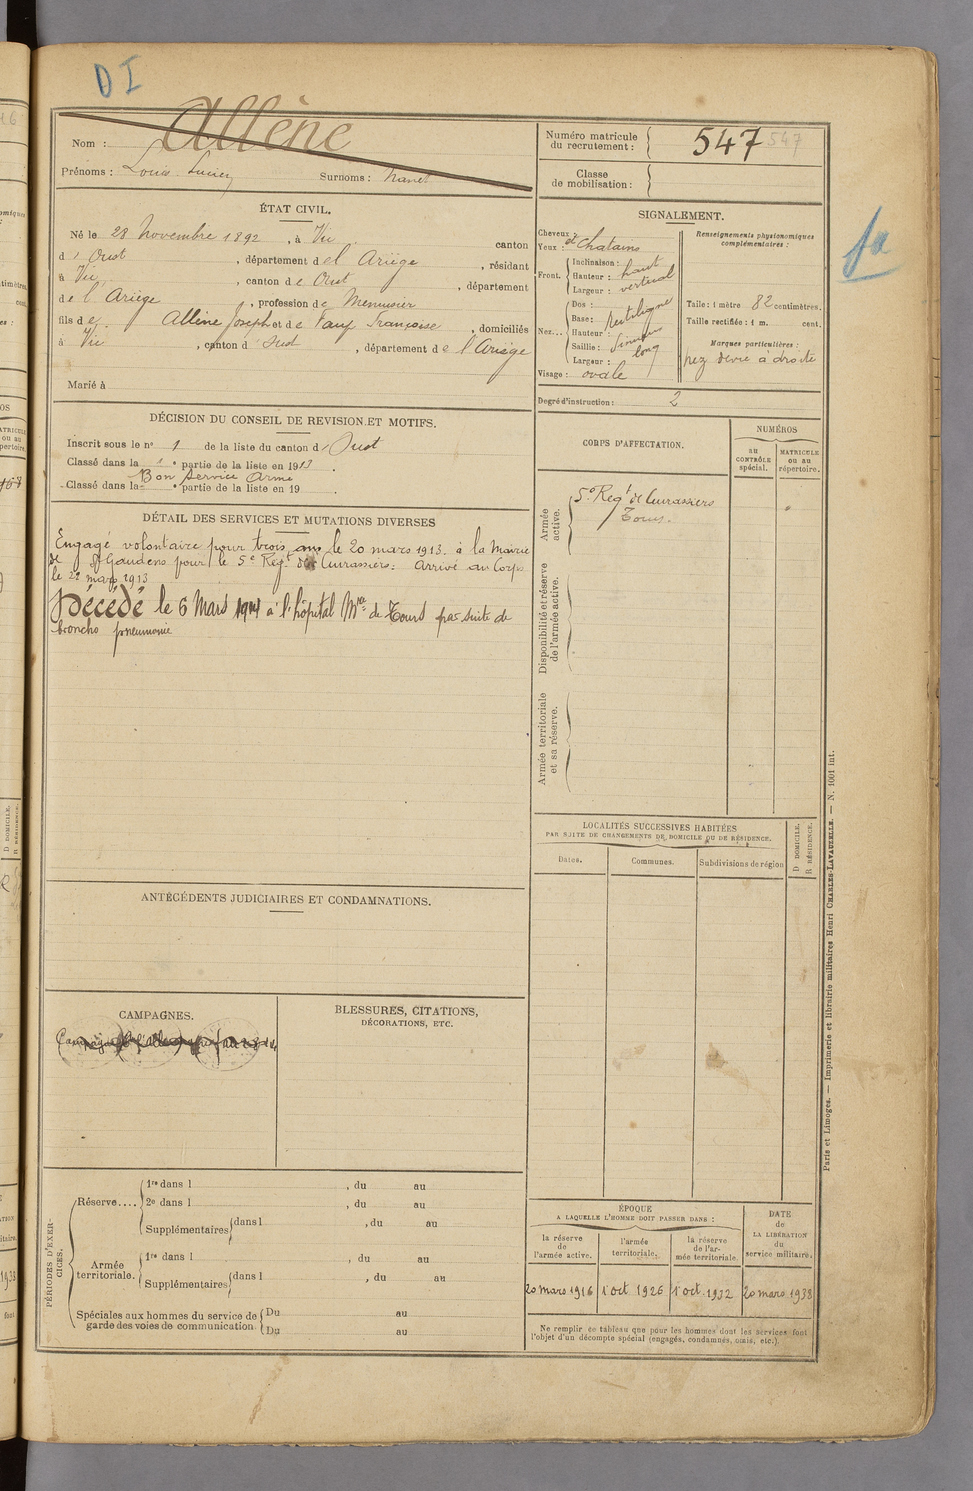 D I
Nom : Allène
Prénoms : Louis Lucien Surnoms : Nanet
Numéro matricule
du recrutement : 547 547
Classe
de mobilisation :
ÉTAT CIVIL.
Né le 28 Novembre 1892, à Vic, canton
d'Oust, département de l'Ariège, résidant
à Vic, canton de Oust, département
de l'Ariège, profession de Menuisier
fils de Allène Joseph et de Faup Françoise, domiciliés
à Vic, canton d'Oust, département de l'Ariège
Marié à
SIGNALEMENT.
Cheveux et
Yeux : Chatains
Front. Inclinaison : haut
Hauteur : vertical
Largeur :
Nez... Dos :
Base : Rectiligne
Hauteur :
Saillie :
Largeur : long
Visage : ovale
Renseignements physionomiques
complémentaires :
Taille : 1 mètre 82 centimètres.
Taille rectifiée : 1 m. cent.
Marques particulières :
nez dévié à droite
Degré d'instruction : 2
DÉCISION DU CONSEIL DE REVISION ET MOTIFS.
Inscrit sous le n° 1 de la liste du canton d'Oust
Classé dans la 1e partie de la liste en 1913
Bon Service Armé
Classé dans la e partie de la liste en 19 .
CORPS D'AFFECTATION.
NUMÉROS
AU
CONTRÔLE
spécial.
MATRICULE
OU AU
répertoire.
Armée
active.
5e Regt de Cuirassiers
Tours.
"
Disponibilité et réserve
de l'armée active.
Armée territoriale
et sa réserve.
DÉTAIL DES SERVICES ET MUTATIONS DIVERSES
Engagé volontaire pour trois ans le 20 mars 1913 à la Mairie
de St Gaudens pour le 5e Regt de Cuirassiers. Arrivé au Corps
le 22 mars 1913
Décédé le 6 Mars 1914 à l'hôpital Mre de Tours par suite de
broncho pneumonie
LOCALITÉS SUCCESSIVES HABITÉES
PAR SUITE DE CHANGEMENTS DE DOMICILE OU DE RÉSIDENCE.
Dates.
Communes.
Subdivisions de région
D DOMICILE.
R RÉSIDENCE.
ANTÉCÉDENTS JUDICIAIRES ET CONDAMNATIONS.
CAMPAGNES.
BLESSURES, CITATIONS,
DÉCORATIONS, ETC.
PÉRIODES D'EXER-
CICES.
Réserve....
1re dans l , du au
2e dans l , du au
Supplémentaires dans l , du au
Armée
territoriale.
1re dans l , du au
Supplémentaires dans l , du au
Spéciales aux hommes du service de
garde des voies de communication.
Du au
Du au
ÉPOQUE
A LAQUELLE L'HOMME DOIT PASSER DANS :
la réserve
de
l'armée active.
l'armée
territoriale.
la réserve
de l'ar-
mée territoriale.
DATE
de
LA LIBÉRATION
du
service militaire.
20 mars 1916
1 oct 1926
1 oct. 1932
20 mars 1938
Ne remplir ce tableau que pour les hommes dont les services font
l'objet d'un décompte spécial (engagés, condamnés, omis, etc.).
Paris et Limoges. — Imprimerie et librairie militaires Henri CHARLES-LAVAUZELLE. — N. 1001 int.